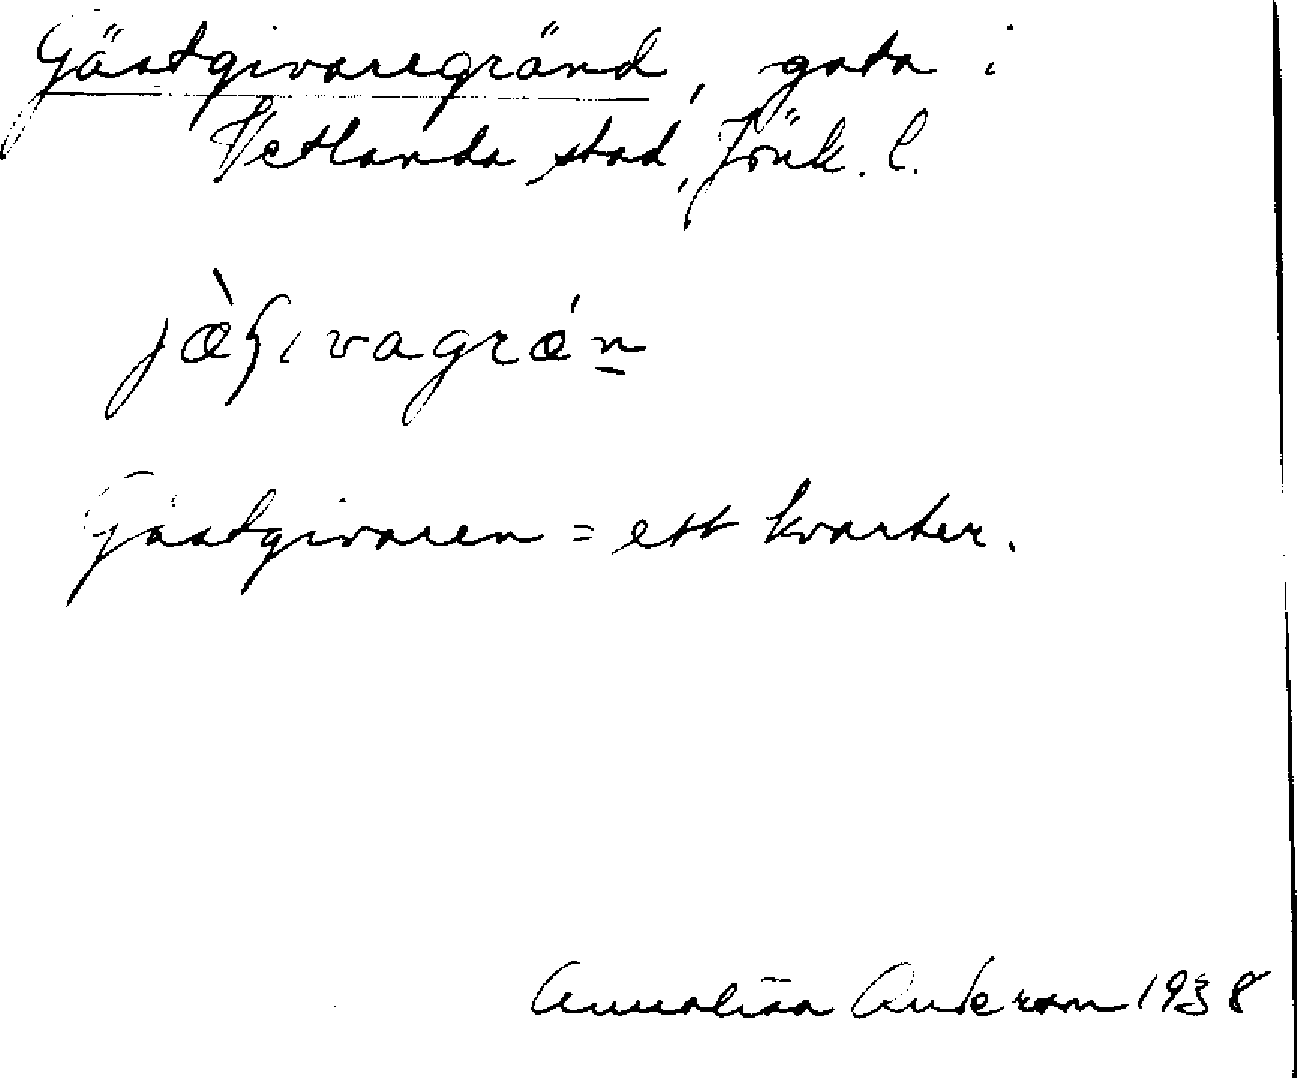 Gästgivaregränd, gata i
Vetlanda stad, Jönk. l.
jæ̀ʃıvagrǽn̲
Gästgivaren = ett kvarter.
Annalisa Anderson 1938